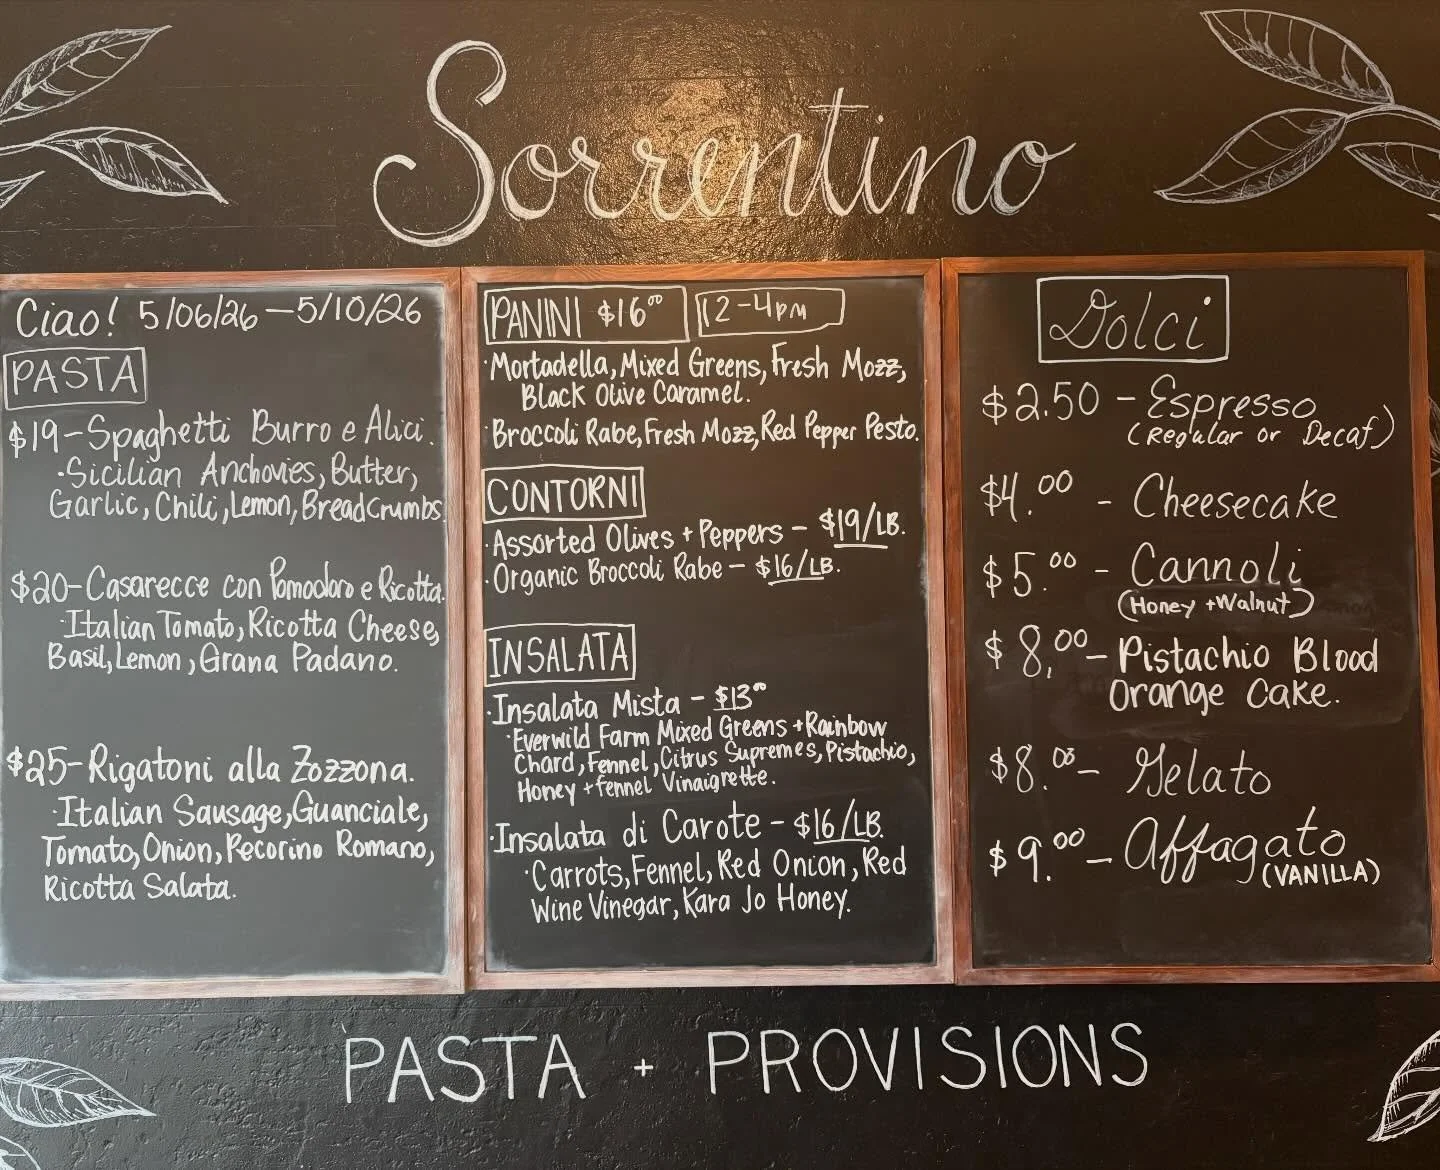 Sorrentino
Ciao! 5/06/26-5/10/26
PASTA
$19-Spaghetti Burro e Alici.
·Sicilian Anchovies, Butter,
Garlic, Chili, Lemon, Breadcrumbs
$20-Casarecce con Pomodoro e Ricotta.
·Italian Tomato, Ricotta Cheese,
Basil, Lemon, Grana Padano.
$25-Rigatoni alla Zozzona.
·Italian Sausage, Guanciale,
Tomato, Onion, Pecorino Romano,
Ricotta Salata.
PANINI $16.00 12-4pm
·Mortadella, Mixed Greens, Fresh Mozz,
Black Olive Caramel.
·Broccoli Rabe, Fresh Mozz, Red Pepper Pesto.
CONTORNI
·Assorted Olives + Peppers - $19/LB.
·Organic Broccoli Rabe - $16/LB.
INSALATA
·Insalata Mista - $13.00
·Everwild Farm Mixed Greens + Rainbow
Chard, Fennel, Citrus Supremes, Pistachio,
Honey + fennel Vinaigrette.
·Insalata di Carote - $16/LB.
·Carrots, Fennel, Red Onion, Red
Wine Vinegar, Kara Jo Honey.
Dolci
$2.50 - Espresso
(Regular or Decaf)
$4.00 - Cheesecake
$5.00 - Cannoli
(Honey + Walnut)
$8.00 - Pistachio Blood
Orange Cake.
$8.00 - Gelato
$9.00 - Affagato
(VANILLA)
PASTA + PROVISIONS